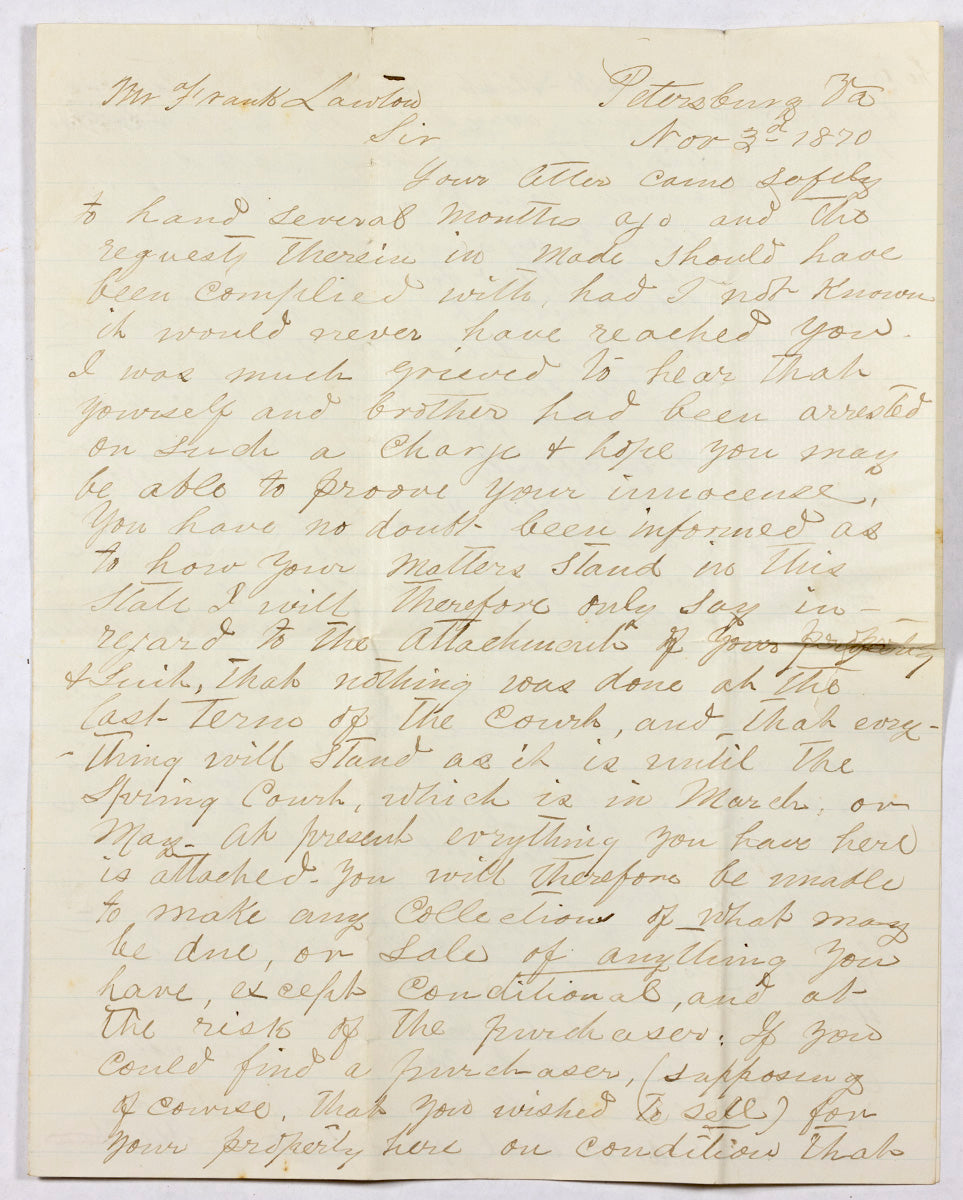 Mr Frank Lawton Petersburg Va
Sir Nov 3d 1870
Your letter came safely
to hand several months ago and the
requests therein in made should have
been complied with, had I not known
it would never have reached you.
I was much grieved to hear that
yourself and brother had been arrested
on such a charge & hope you may
be able to proove your innocense,
You have no doubt been informed as
to how your matters stand in this
State I will therefore only say in-
regard to the attachment of your property
& Suit, that nothing was done at the
last term of the court, and that evry-
-thing will stand as it is until the
Spring Court, which is in March, or
May. At present evrything you have here
is attached. You will therefore be unable
to make any collections of what may
be due, or sale of anything you
have, except conditional, and at
the risk of the purchaser. If you
could find a purchaser, (supposing
of course, that you wished to sell) for
your property here on condition that